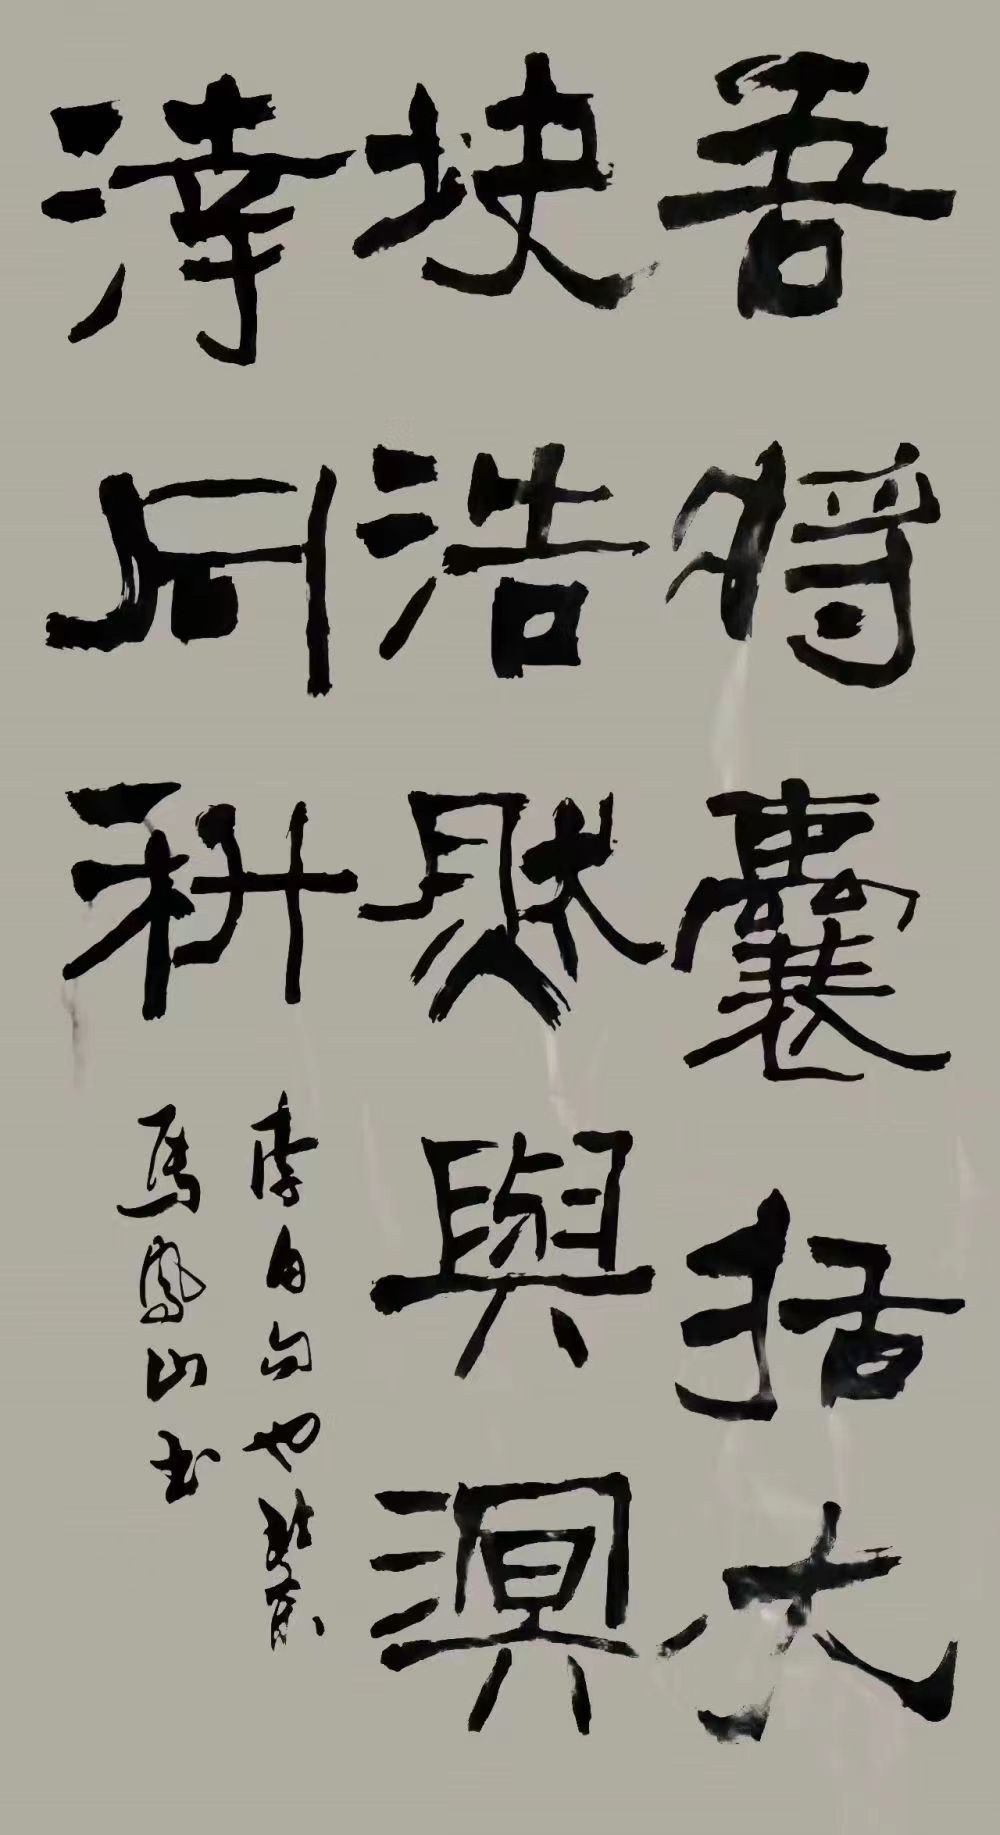 吾將囊括大
塊浩然與溟
涬同科
李白句也
馬鳳山書